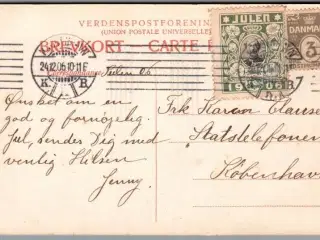 VERDENSPOSTFORENINGEN
(UNION POSTALE UNIVERSELLE)
BREVKORT. CARTE
JULEN
1906
DANMARK
3
24.12.06. 10-11 F
K. B.
Julen 06
Ønsket om en
god og fornøjelig
Jul, sendes Dig med
venlig Hilsen
Jenny.
Frk Karen Clausen
Statstelefonen
København